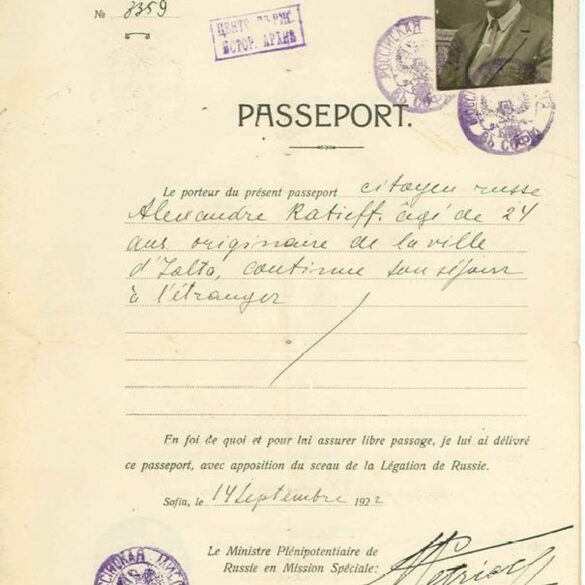 № 3359
ЦЕНТР. ПАРТ.
ИСТОР. АРХИВ
РОССИЙСКАЯ
PASSEPORT.
Le porteur du présent passeport citoyen russe
Alexandre Ratieff, âgé de 24
ans originaire de la ville
d'Jalta, continue son séjour
à l'étranger
En foi de quoi et pour lui assurer libre passage, je lui ai délivré
ce passeport, avec apposition du sceau de la Légation de Russie.
Sofia, le 14 Septembre 1922
Le Ministre Plénipotentiaire de
Russie en Mission Spéciale: